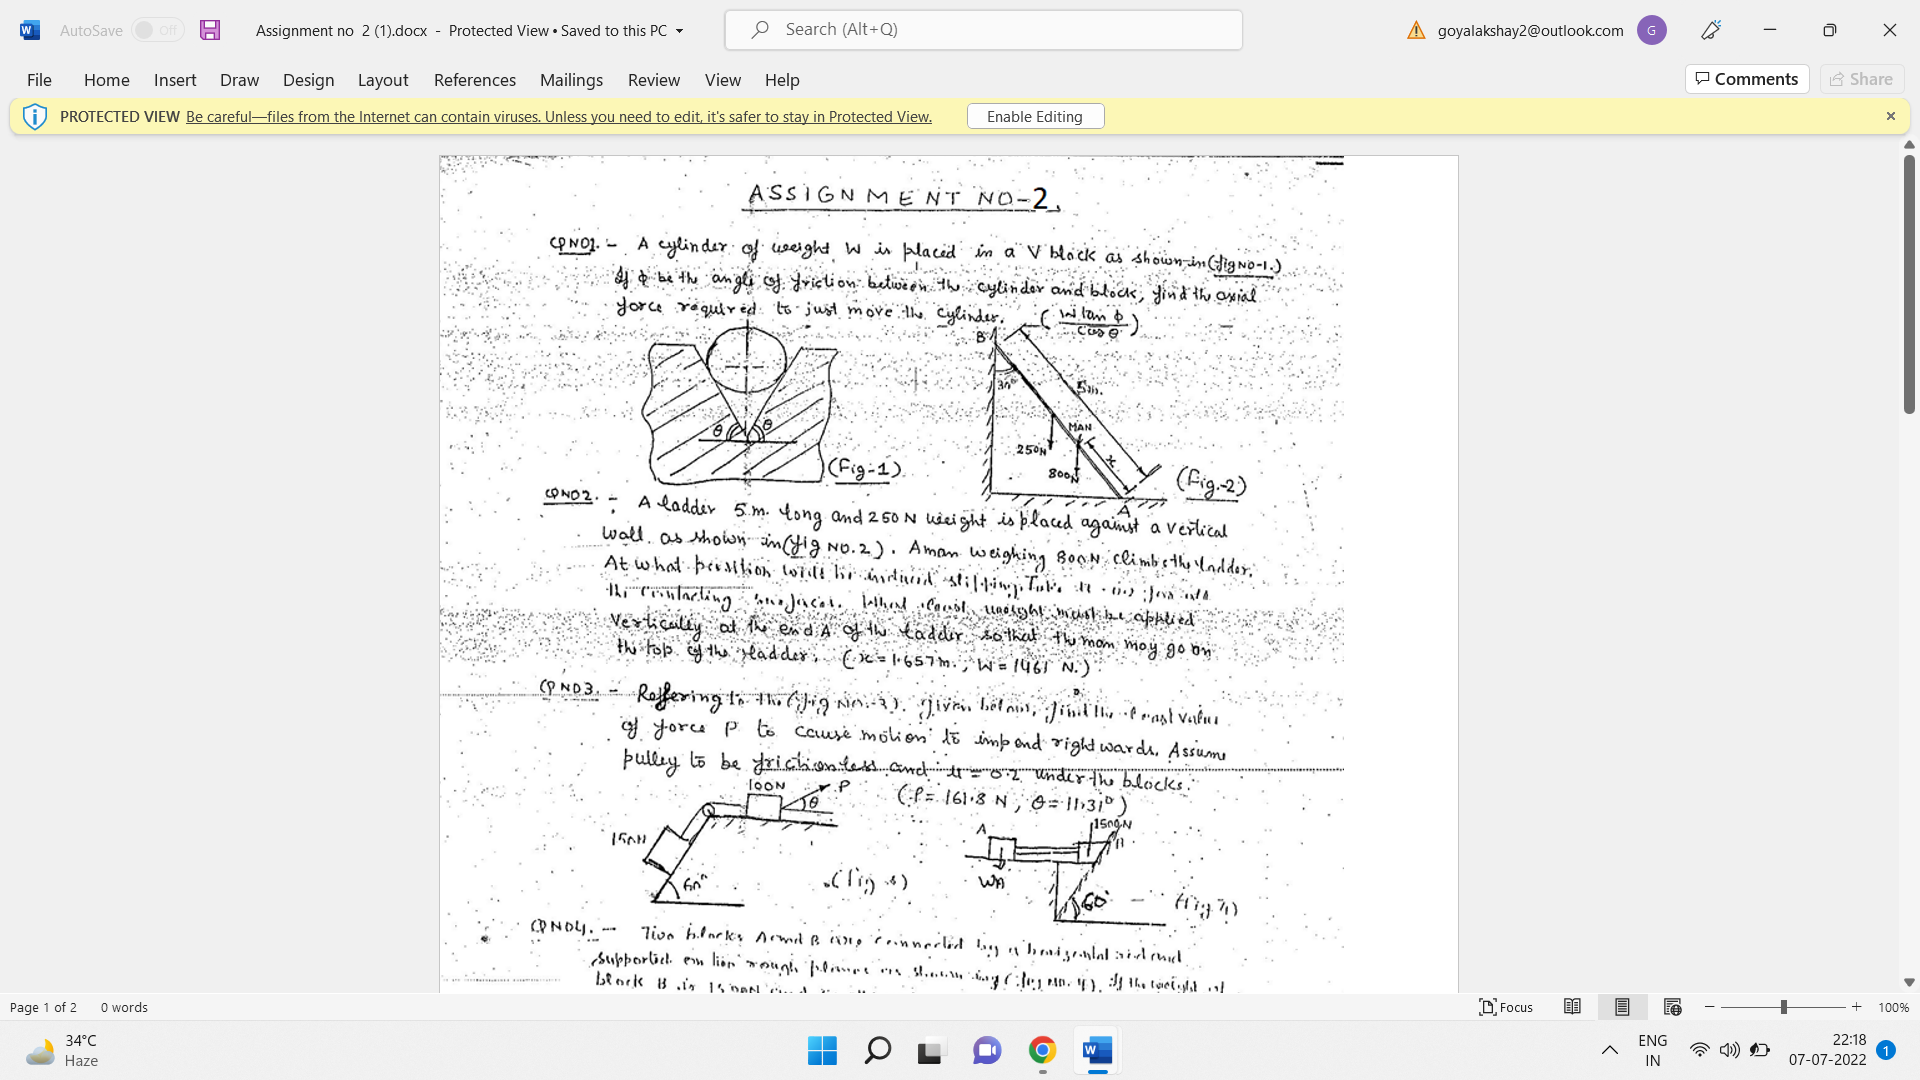 AutoSave Off Assignment no 2 (1).docx - Protected View • Saved to this PC Search (Alt+Q) goyalakshay2@outlook.com G
File Home Insert Draw Design Layout References Mailings Review View Help Comments Share
PROTECTED VIEW Be careful—files from the Internet can contain viruses. Unless you need to edit, it's safer to stay in Protected View. Enable Editing
ASSIGNMENT NO-2.
QNO1. - A cylinder of weight W is placed in a V block as shown in (fig NO-1.)
If φ be the angle of friction between the cylinder and block, find the axial
force required to just move the cylinder. ( W tan φ / cos θ )
θ θ
(Fig-1)
B
30°
5m.
250N
MAN
800N
x
A
(Fig.-2)
QNO2. - A ladder 5 m. long and 250 N weight is placed against a vertical
wall as shown in (fig NO.2). A man weighing 800N climbs the ladder.
At what position will he induced slipping. Take
the contacting surfaces. What least weight must be applied
vertically at the end A of the ladder so that the man may go on
the top of the ladder. (x = 1.657m., W = 1461 N.)
QNO3. - Reffering to the (fig NO.-3). given below, find the least value
of force P to cause motion to impend right wards. Assume
pulley to be frictionless and μ = 0.2 under the blocks.
(P = 161.8 N, θ = 11.31°)
100N
P
θ
150N
60°
(fig 3)
A
1500N
B
WA
60°
(fig 4)
QNO4. - Two blocks A and B are connected by a horizontal rod and
supported on two rough planes as shown in (fig NO. 4). If the weight of
block B is 1500N
Page 1 of 2 0 words Focus 100%
34°C
Haze
ENG
IN
22:18
07-07-2022
1